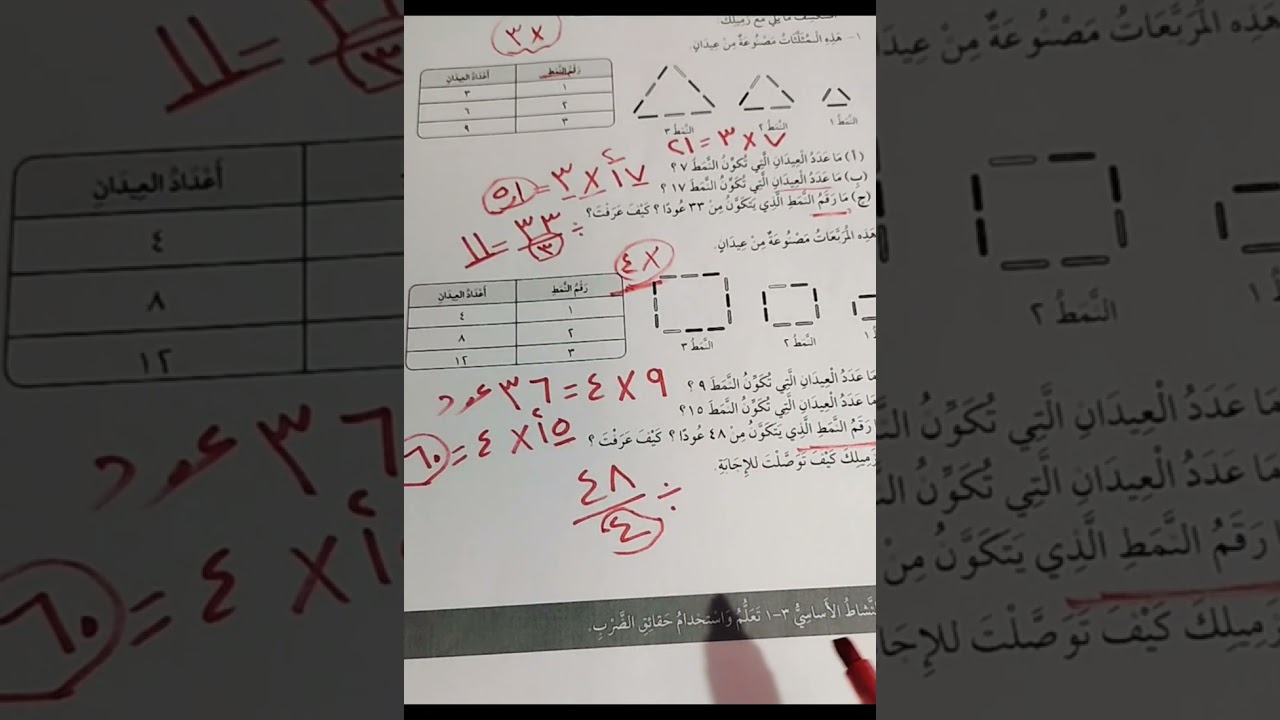 اسْتَكْشِفْ مَا يَلِي مَعَ زَمِيلِكَ.
٣ ×
١- هَذِهِ الْمُثَلَّثَاتُ مَصْنُوعَةٌ مِنْ عِيدَانٍ.
رَقْمُ النَّمَطِ أَعْدَادُ العِيدَانِ
١ ٣
٢ ٦
٣ ٩
النَّمَطُ ١ النَّمَطُ ٢ النَّمَطُ ٣
٧ × ٣ = ٢١
(أ) مَا عَدَدُ الْعِيدَانِ الَّتِي تُكَوِّنُ النَّمَطَ ٧ ؟
(ب) مَا عَدَدُ الْعِيدَانِ الَّتِي تُكَوِّنُ النَّمَطَ ١٧ ؟
١٧ × ٣ = ٥١
(ج) مَا رَقَمُ النَّمَطِ الَّذِي يَتَكَوَّنُ مِنْ ٣٣ عُودًا ؟ كَيْفَ عَرَفْتَ ؟
÷ ٣٣ / ٣ = ١١
هَذِهِ الْمُرَبَّعَاتُ مَصْنُوعَةٌ مِنْ عِيدَانٍ.
× ٤
رَقْمُ النَّمَطِ أَعْدَادُ العِيدَانِ
١ ٤
٢ ٨
٣ ١٢
١ النَّمَطُ ٢ النَّمَطُ ٣
مَا عَدَدُ الْعِيدَانِ الَّتِي تُكَوِّنُ النَّمَطَ ٩ ؟
٩ × ٤ = ٣٦ عود
مَا عَدَدُ الْعِيدَانِ الَّتِي تُكَوِّنُ النَّمَطَ ١٥ ؟
١٥ × ٤ = ٦٠
مَا رَقَمُ النَّمَطِ الَّذِي يَتَكَوَّنُ مِنْ ٤٨ عُودًا ؟ كَيْفَ عَرَفْتَ ؟
زَمِيلِكَ كَيْفَ تَوَصَّلْتَ لِلإِجَابَةِ.
÷ ٤٨ / ٤
النَّشَاطُ الأَسَاسِيُّ ٣-١ تَعَلُّمُ وَاسْتِخْدَامُ حَقَائِقِ الضَّرْبِ.